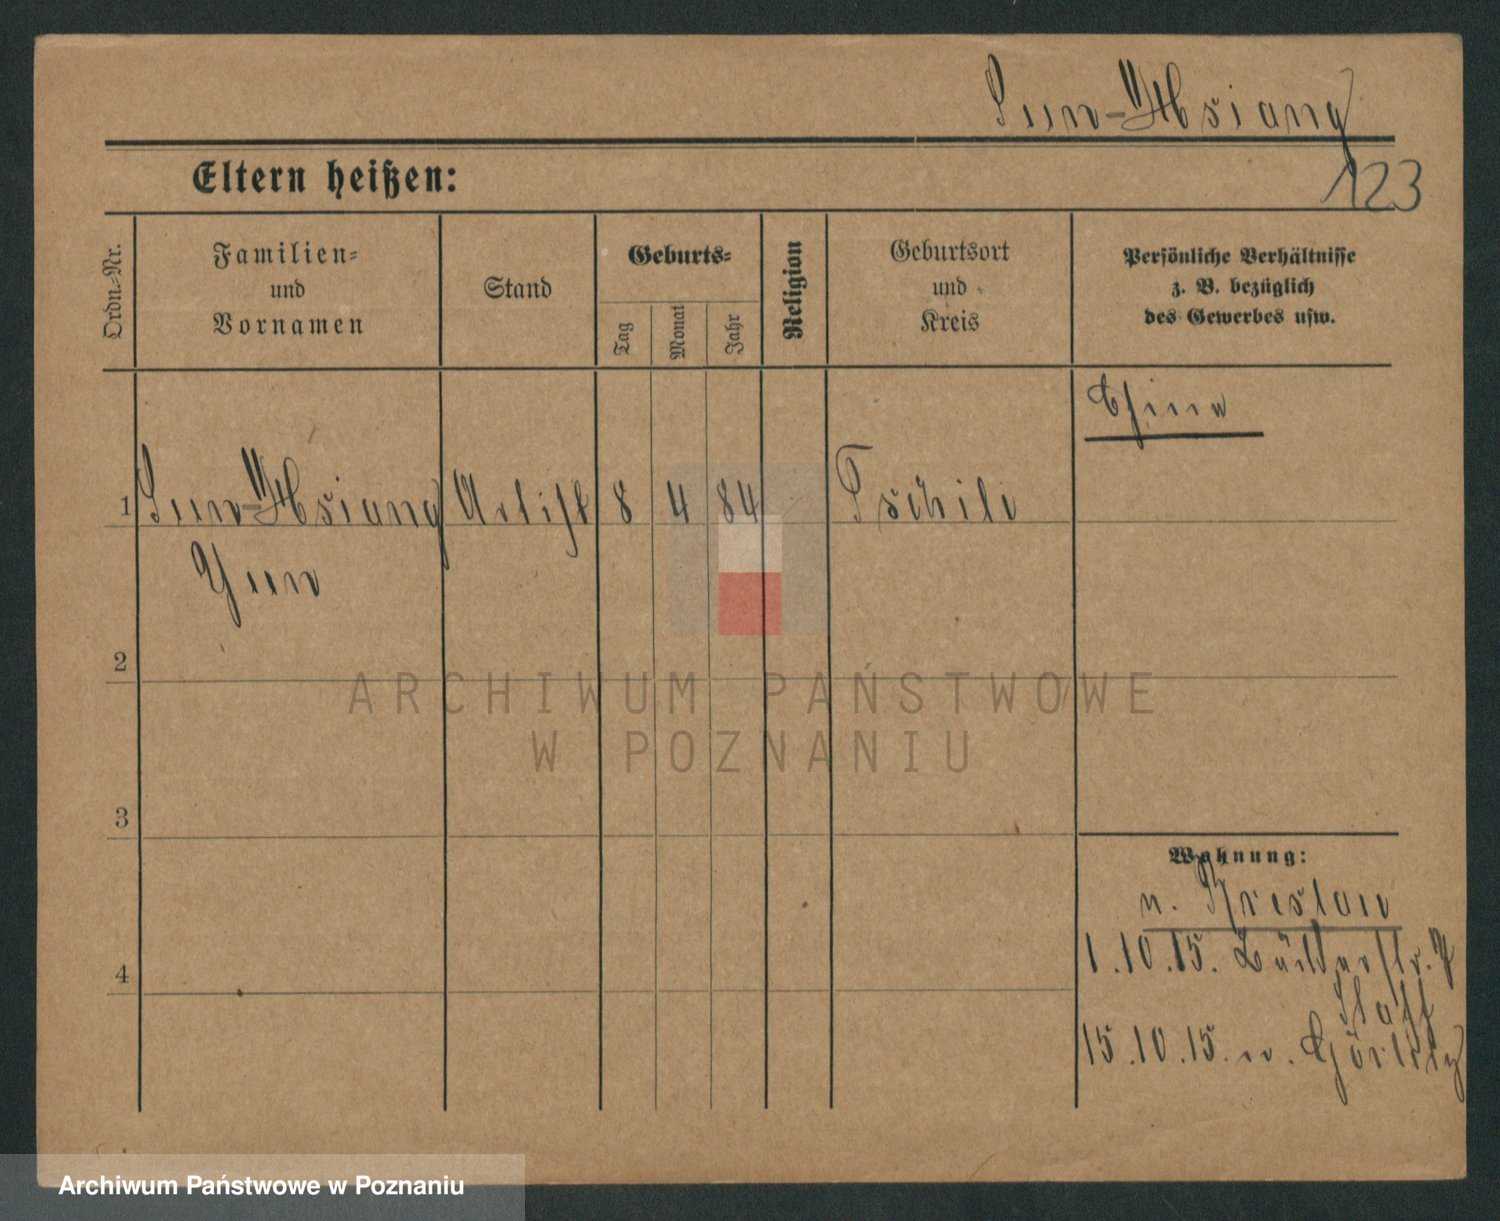 Sun-Hsiang
Eltern heißen:
123
Ordn.-Nr.
Familien-
und
Vornamen
Stand
Geburts-
Tag
Monat
Jahr
Religion
Geburtsort
und
Kreis
Persönliche Verhältnisse
z. B. bezüglich
des Gewerbes usw.
China
1 Sun-Hsiang Artist 8 4 84 Tschili
Yun
2
ARCHIWUM PAŃSTWOWE
W POZNANIU
3
Wohnung:
v. Breslau
4
1.10.15. Bäckerstr.
15.10.15. n. Görlitz
Archiwum Państwowe w Poznaniu